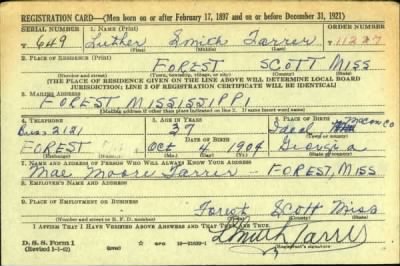 REGISTRATION CARD—(Men born on or after February 17, 1897 and on or before December 31, 1921)
SERIAL NUMBER 1. NAME (Print) ORDER NUMBER
649 Luther Smith Tarrer 11227
(First) (Middle) (Last)
2. PLACE OF RESIDENCE (Print)
FOREST SCOTT MISS
(Number and street) (Town, township, village, or city) (County) (State)
[THE PLACE OF RESIDENCE GIVEN ON THE LINE ABOVE WILL DETERMINE LOCAL BOARD
JURISDICTION; LINE 2 OF REGISTRATION CERTIFICATE WILL BE IDENTICAL]
3. MAILING ADDRESS
FOREST MISSISSIPPI
(Mailing address if other than place indicated on line 2. If same insert word same)
4. TELEPHONE 5. AGE IN YEARS 6. PLACE OF BIRTH
Bus. 2181 37 Ideal MACON CO
DATE OF BIRTH
FOREST Oct 4 1904 Georgia
(Exchange) (Number) (Mo.) (Day) (Yr.) (State or country)
7. NAME AND ADDRESS OF PERSON WHO WILL ALWAYS KNOW YOUR ADDRESS
Mae Moore Tarrer - FOREST, MISS
8. EMPLOYER'S NAME AND ADDRESS
9. PLACE OF EMPLOYMENT OR BUSINESS
Forest Scott Miss
(Number and street or R. F. D. number) (Town) (County) (State)
I AFFIRM THAT I HAVE VERIFIED ABOVE ANSWERS AND THAT THEY ARE TRUE.
D. S. S. Form 1
(Revised 1-5-42) (over) GPO 16—21630-1 L Smith Tarrer
(Registrant's signature)